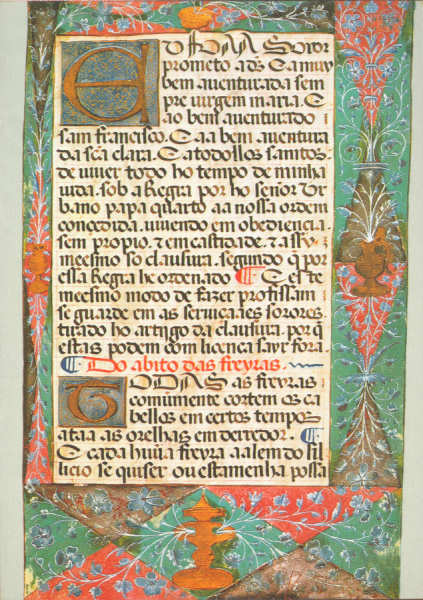 EU DONA Soror
prometo a ds. & a muy
bem aventurada sem
pre uirgem maria. &
ao bem auenturado
sam francisco. & a a bem auentura
da scã clara. & a todollos santos.
de uiuer todo ho tempo de minha
uida. sob a Regra por ho señor Ur
bano papa quarto aa nossa ordem
concedida. uiuendo em obediencia.
sem propio. & em castidade. & assy
meesmo so clausura. segundo q̃ por
essa Regra he ordenado ¶ & este
meesmo modo de fazer profissam
se guarde em as seruiçaẽs sorores.
tirado ho artijgo da clausura. por q̃
estas podem com licença sayr fora.
¶ Do abito das freyras.
TODAS as freyras
comũmente cortem os ca
bellos em certos tempos
ataa as orelhas em derredor. ¶
& cada huũa freyra a alem do sil
licio se quiser ou estamenha possa